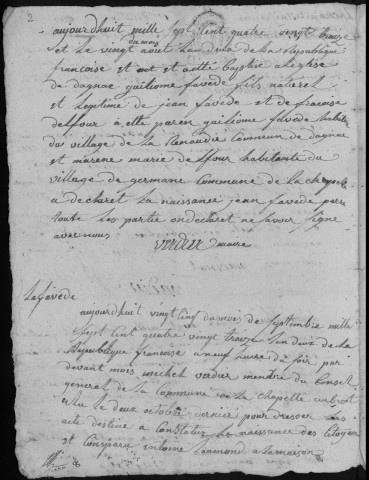 2
aujourdhuit mille sept cent quatre vingt treize
et le vingt du mois aout landeux de la republique
francoise et ont et atté baptise aleglise
de dagnac guiliome favede fils naturel
et legitime de jean favede et de francoise
delfour a ette paren guiliome favede habite
du village de la Renaudie commeun de dagnac
et marene marie delfour habitante du
village de germane commune de la chapelle
a declaret la naissance jean favede pere
toute les partie ondeclaret ne savoir signe
avec nous
verdier maire
La favede
aujourdhuit vingt cinq du mois de septembre mille
sept cent quatre vingt treize landeux de la
Republique francoise a neuf hure du soir par
devant mois michel verdier membre du conseil
general de la commune de la chapelle
elu le deux octobre dernier pour dresser les
acte destine a constater les naissance des citoyen
et conspara antoine lamond a la maison